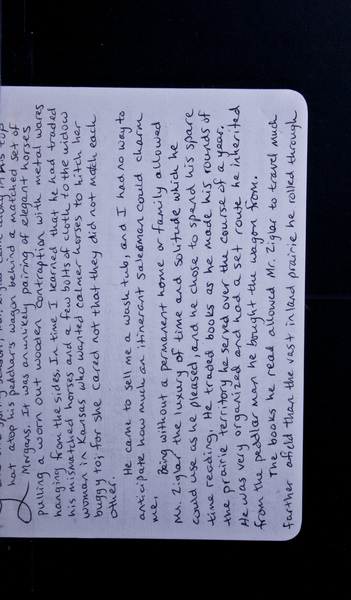 hat atop his peddlar's wagon behind a matched set of
Morgans. It was an unlikely pairing of elegant horses
pulling a worn out wooden contraption with metal wares
hanging from the sides. In time I learned that he had traded
his mismatched horses and a few bolts of cloth to the widow
woman in Kansas who wanted calmer horses to hitch her
buggy to; for she cared not that they did not match each
other.
He came to sell me a wash tub, and I had no way to
anticipate how much an itinerant salesman could charm
me.
Being without a permanent home or family allowed
Mr. Ziglar the luxury of time and solitude which he
could use as he pleased, and he chose to spend his spare
time reading. He traded books as he made his rounds of
the prairie territory he served over the course of a year.
He was very organized and had a set route he inherited
from the peddlar man he bought the wagon from.
The books he read allowed Mr. Ziglar to travel much
farther afield than the vast inland prairie he rolled through